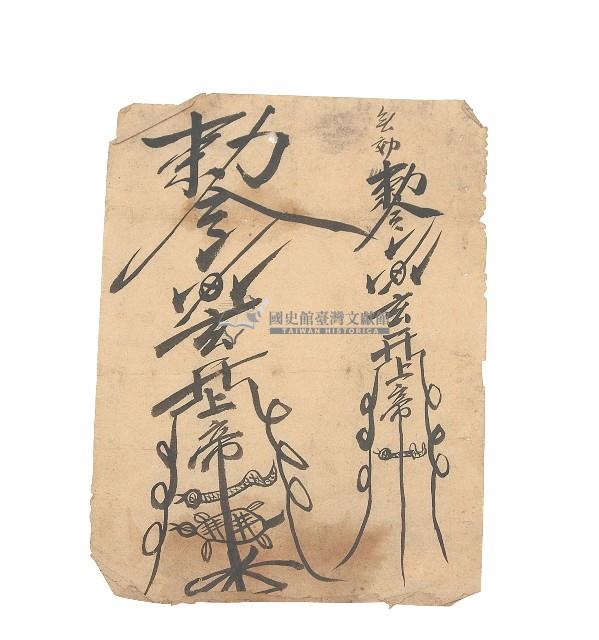 勅令玄天上帝
勅令玄天上帝
國史館臺灣文獻館
TAIWAN HISTORICA